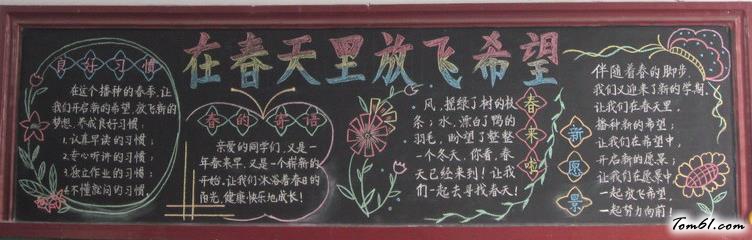 在春天里放飞希望
良好习惯
在这个播种的春季,让
我们开启新的希望,放飞新的
梦想,养成良好习惯:
1.认真早读的习惯;
2.专心听讲的习惯;
3.独立作业的习惯;
4.不懂就问的习惯.
春的寄语
亲爱的同学们,又是一
年春来早,又是一个崭新的
开始,让我们沐浴着春日的
阳光,健康快乐地成长!
春来啦
风,摇绿了树的枝
条;水,漂白了鸭的
羽毛,盼望了整整
一个冬天,你看,春
天已经来到!让我
们一起去寻找春天!
新愿景
伴随着春的脚步,
我们又迎来了新的学期,
让我们在春天里,
播种新的希望;
让我们在希望中,
开启新的愿景;
让我们在愿景中
一起放飞希望,
一起努力向前!
Tom61.com